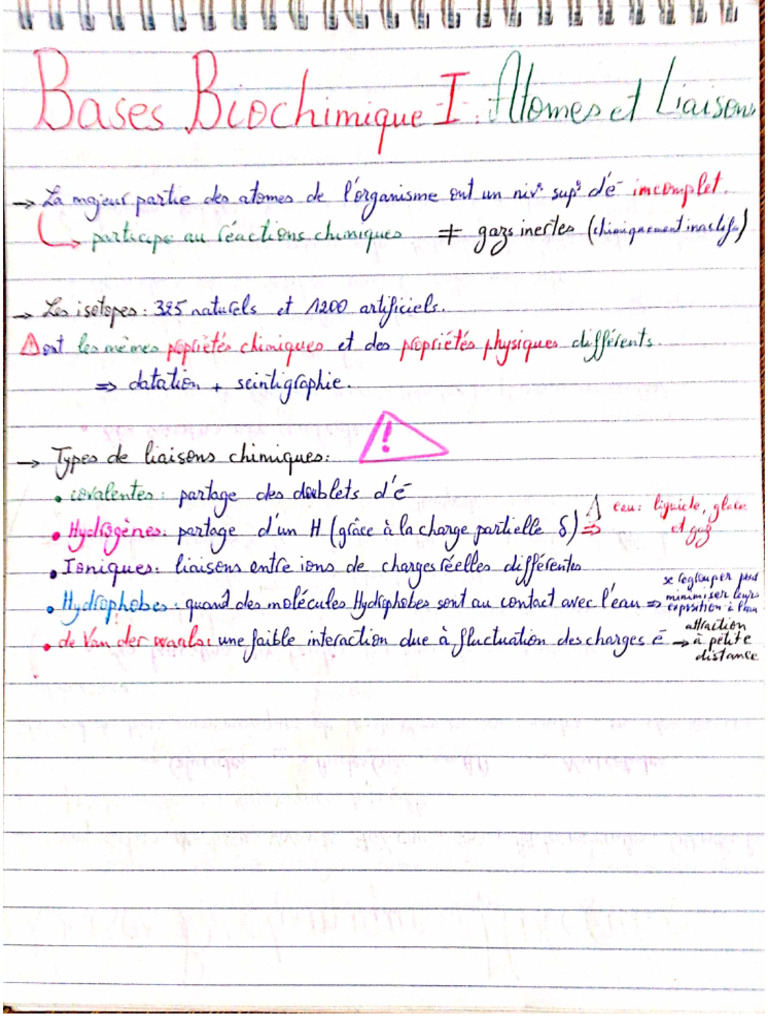 Bases Biochimique I : Atomes et Liaisons
→ La majeur partie des atomes de l'organisme ont un niv° sup° d'é incomplet.
↳ participe au réactions chimiques ≠ gazs inertes (chimiquement inactifs)
→ Les isotopes : 325 naturels et 1200 artificiels.
⚠ ont les mêmes propriétés chimiques et des propriétés physiques différents.
⇒ datation + scintigraphie.
→ Types de liaisons chimiques :
• covalentes : partage des doublets d'é
• Hydrogènes : partage d'un H (grâce à la charge partielle δ) ⇒ eau : liquide, glace et gaz
• Ioniques : liaisons entre ions de charges réelles différentes
• Hydrophobes : quand des molécules Hydrophobes sont au contact avec l'eau ⇒ se regrouper pour minimiser leurs exposition à l'eau
• de Van der waals : une faible interaction due à fluctuation des charges é → attraction à petite distance